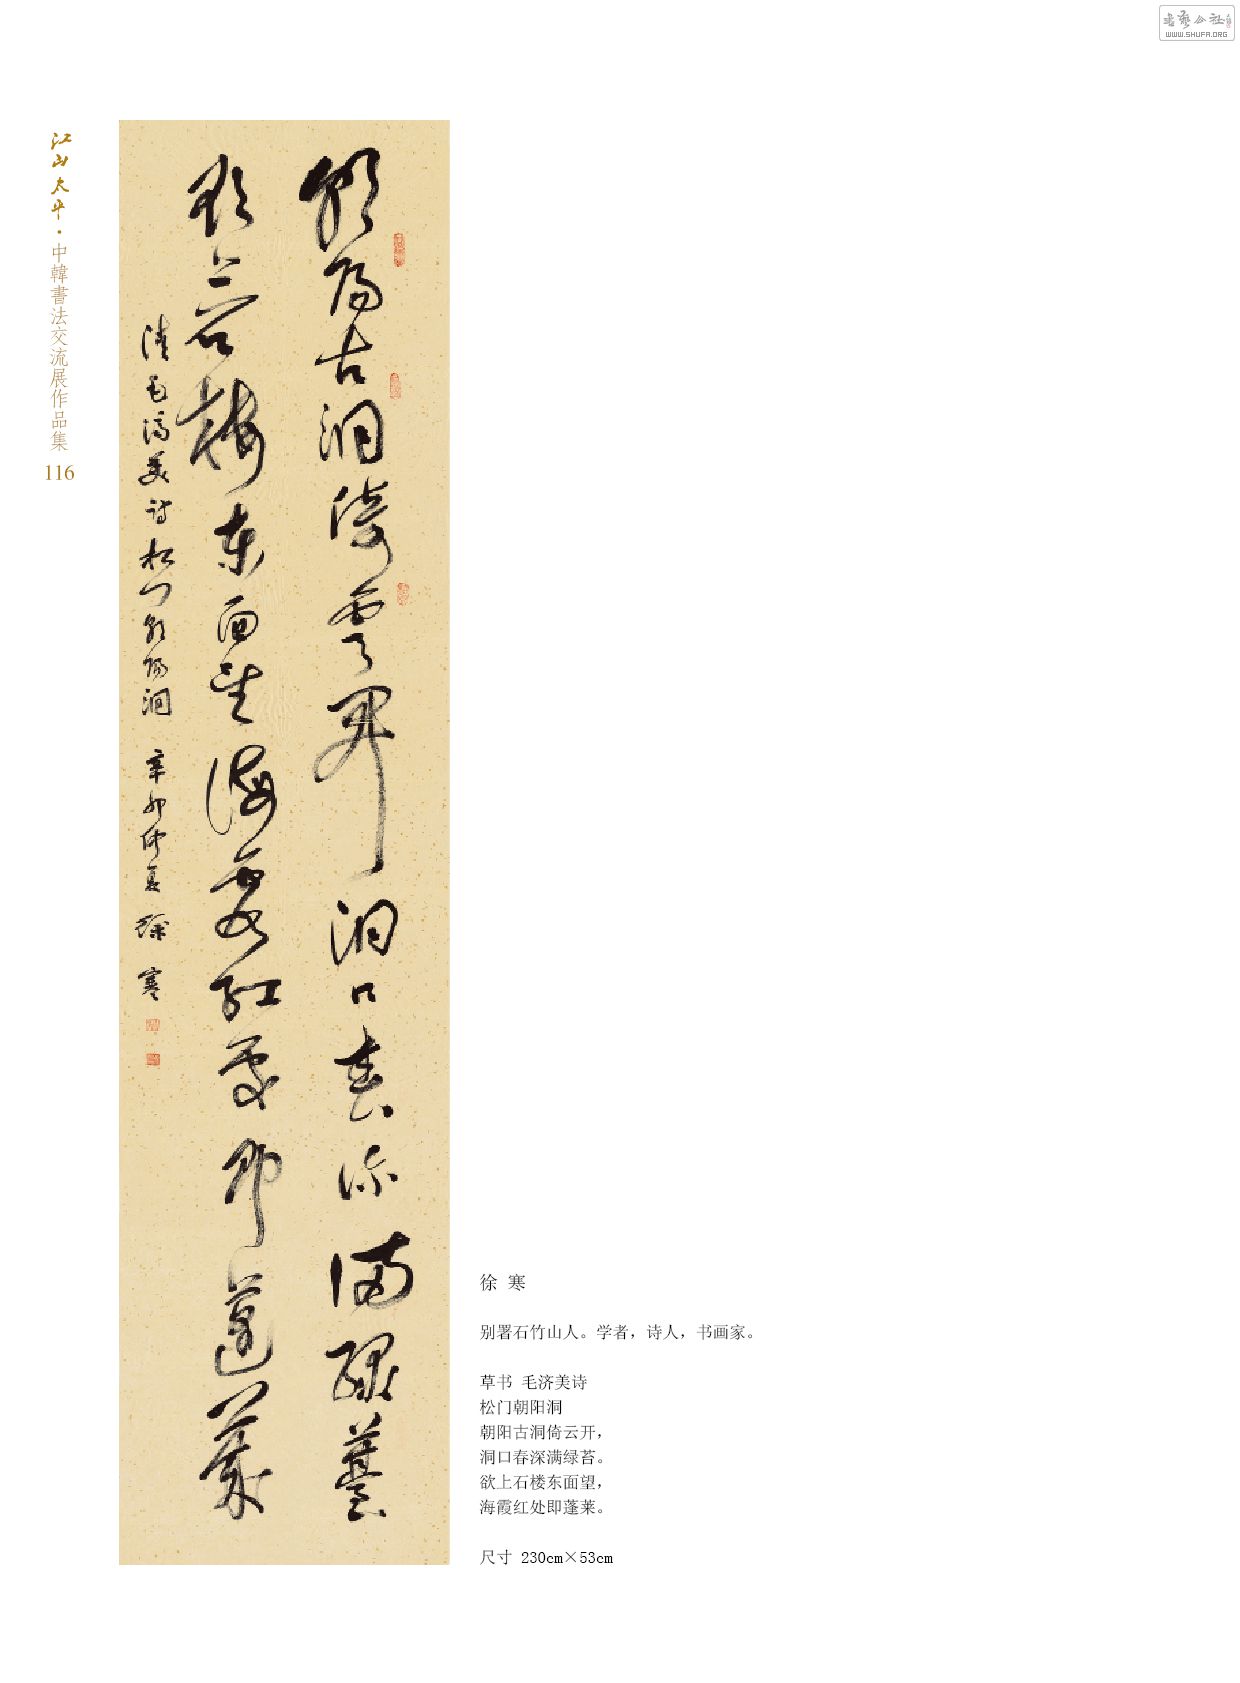 書藝公社
WWW.SHUFA.ORG
江山太平·中韓書法交流展作品集
116
朝陽古洞倚雲開洞口春深滿綠薹
欲上石樓東面望海霞紅處即蓬萊
清毛濟美詩松門朝陽洞 辛卯仲夏 徐寒
徐 寒
别署石竹山人。学者，诗人，书画家。
草书 毛济美诗
松门朝阳洞
朝阳古洞倚云开，
洞口春深满绿苔。
欲上石楼东面望，
海霞红处即蓬莱。
尺寸 230cm×53cm